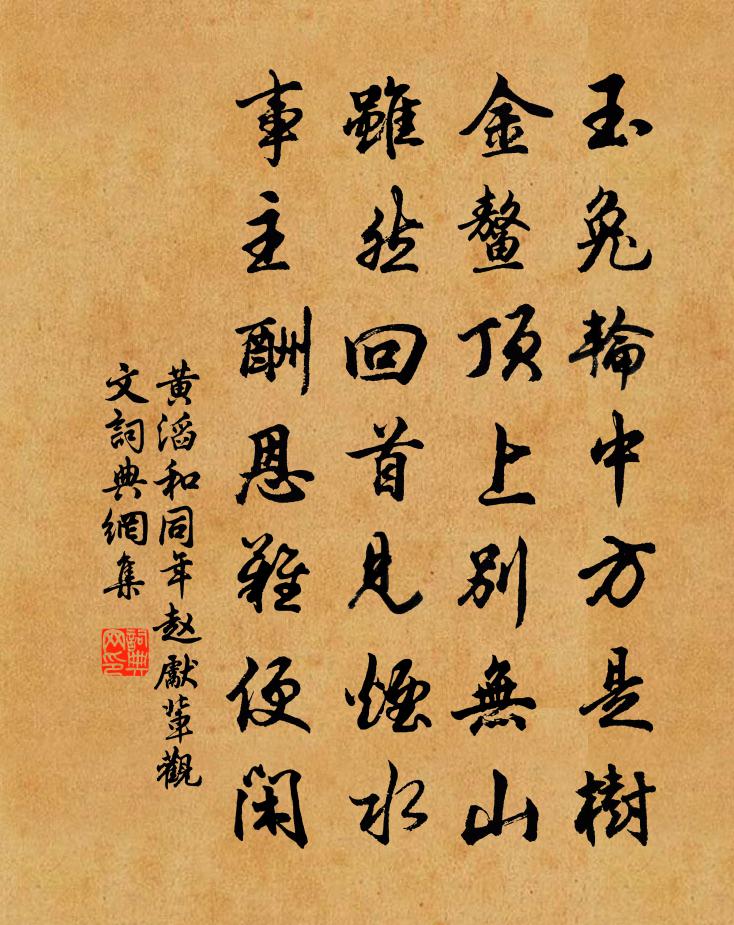 玉兔輪中方是樹
金鰲頂上別無山
雖然回首見煙水
事主酬恩難便閑
黃滔和同年趙獻輩觀
文詞典網集
詞典網印